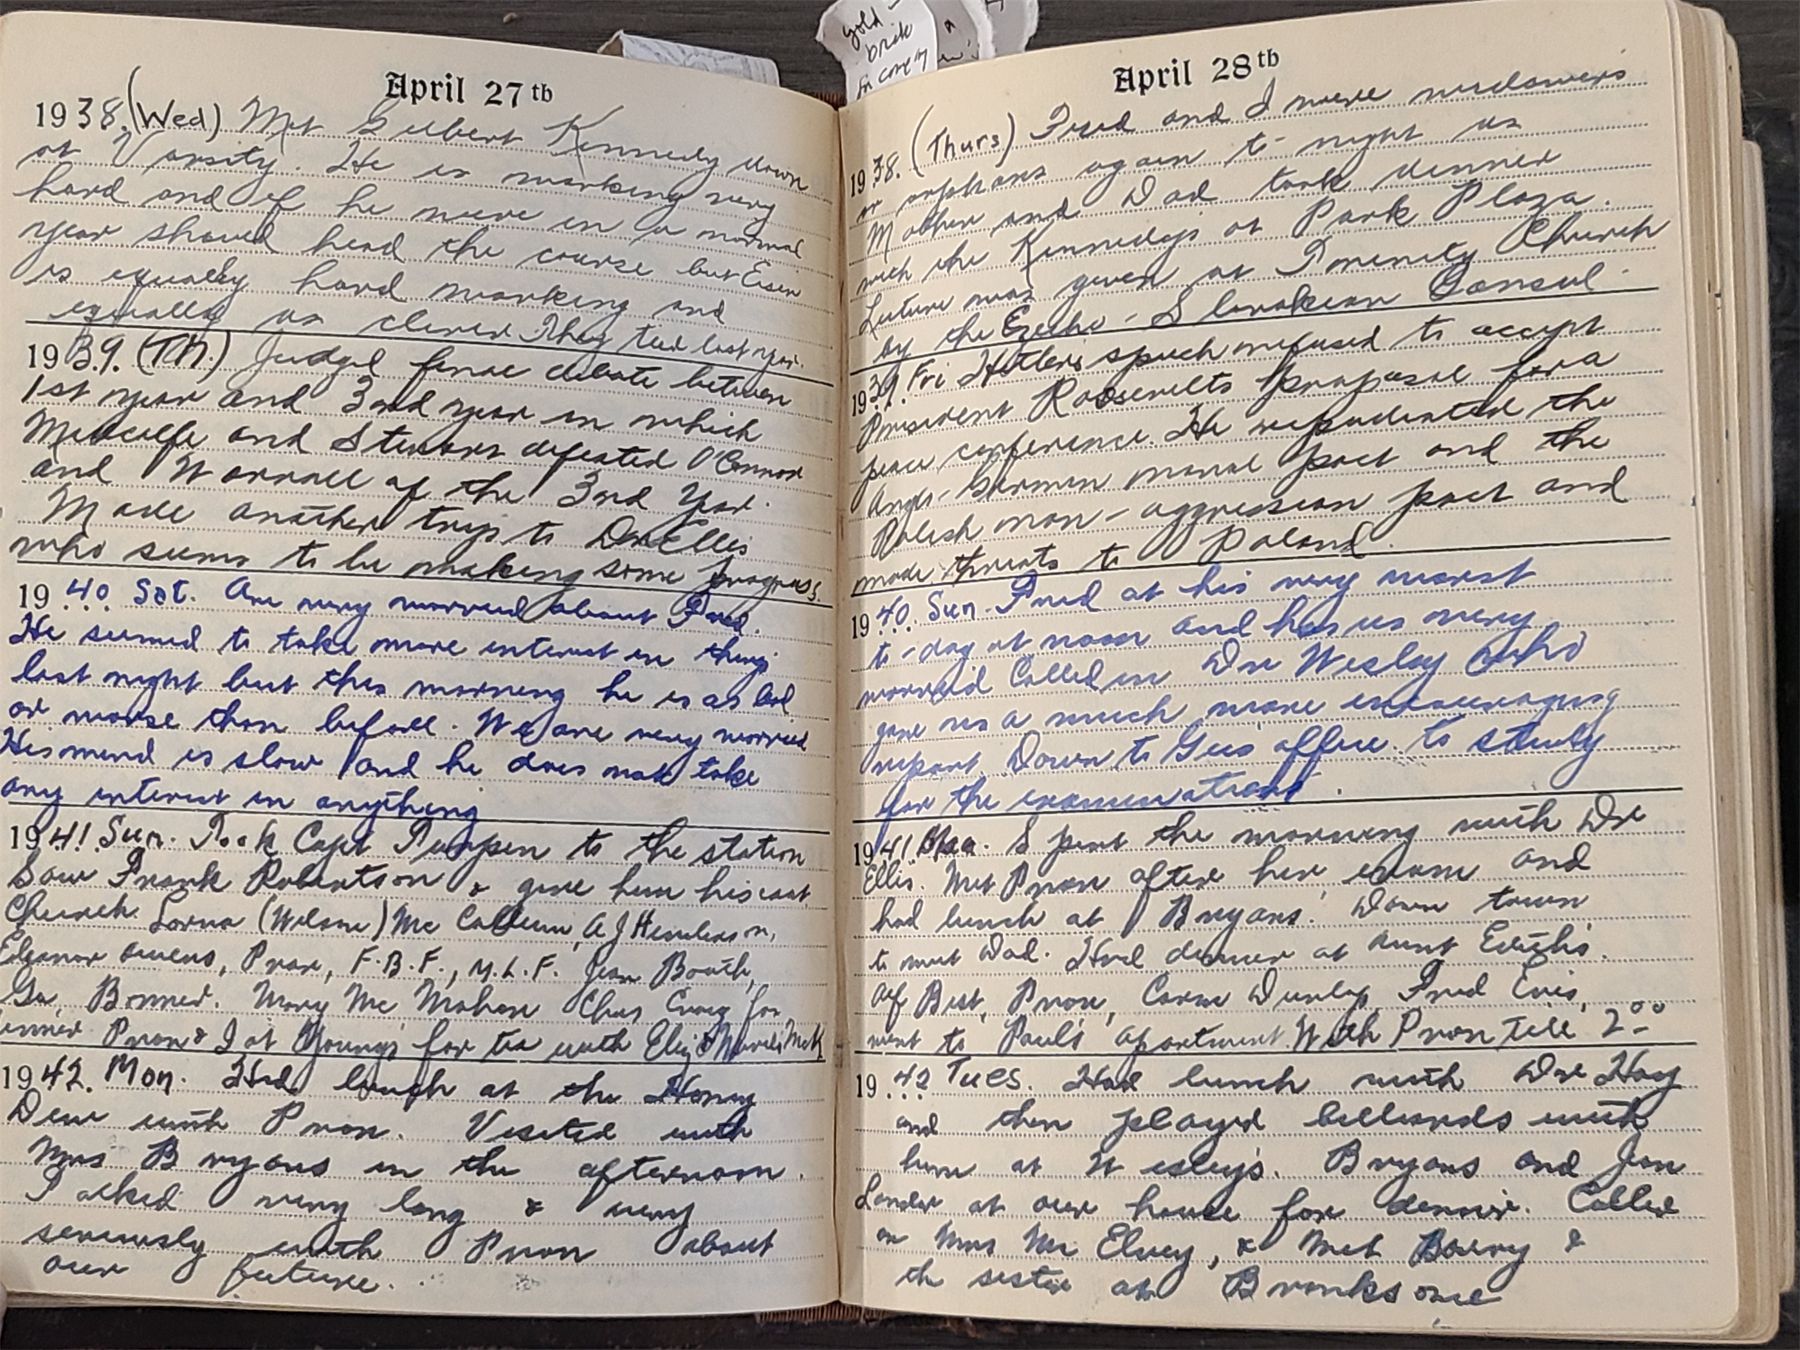 gold
brick
April 27th
1938. (Wed) Met Gilbert Kennedy down
at Varsity. He is working very
hard and if he were in a normal
year should head the course but Eisen
is equally hard working and
equally as clever They tied last year.
1939. (TH.) Judged final debate between
1st year and 3rd year in which
Metcalfe and Stewart defeated O'Connor
and Worrall of the 3rd Year.
Made another trip to Dr Ellis
who seems to be making some progress.
1940 Sat. Are very worried about Fred.
He seemed to take more interest in things
last night but this morning he is as bad
or worse than before. We are very worried
His mind is slow and he does not take
any interest in anything
1941 Sun. Took Capt to the station
Saw Frank Robertson & give him his coat
Church. Lorna (Wilson) Mc Callum, A J Henderson,
Eleanor Owens, Pron, F.B.F., M.L.F. Jean Booth,
Bonner. Mary Mc Mahon Chas Craig for
dinner Pron & I at Young's for tea with
1942. Mon. Had lunch at the Honey
Dew with Pron. Visited with
Mrs Bryans in the afternoon.
Talked very long & very
seriously with Pron about
our future.
April 28th
1938. (Thurs) Fred and I were widowers
or orphans again to-night as
Mother and Dad took dinner
with the Kennedys at Park Plaza.
Lecture was given at Trinity Church
by the Czecho-Slovakian Consul.
1939. Fri Hitler's speech refused to accept
President Roosevelts proposal for a
peace conference. He repudiated the
Anglo-German naval pact and the
Polish non-aggression pact and
made threats to Poland.
1940. Sun. Fred at his very worst
to-day at noon and has us very
worried Called in Dr Wesley who
gave us a much more encouraging
report. Down to Gus' office to study
for the examinations.
1941 Mon. Spent the morning with Dr
Ellis. Met Pron after her exam and
had lunch at Bryans'. Down town
to meet Dad. Had dinner at Aunt Edith's.
Alf Best, Pron, Dunlop Fred
went to Paul's apartment. With Pron till 2:00
1942 Tues. Had lunch with Dr Hay
and then played billiards with
him at Wesley's. Bryans and Jean
Lander at our house for dinner. Called
on Mrs Mc Elvey, & Met Barry &
the sister at Branksome